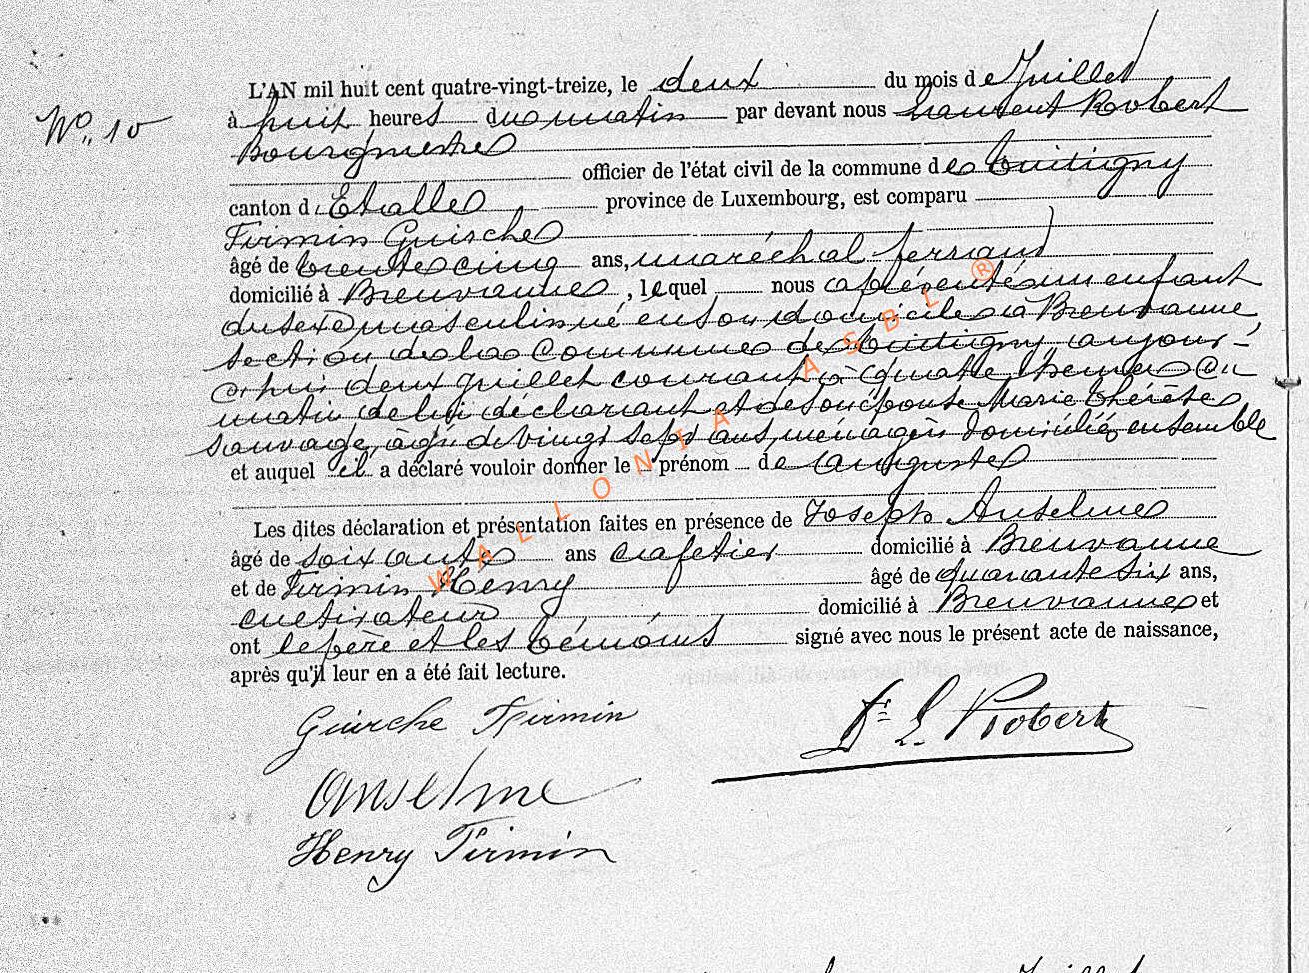 L'AN mil huit cent quatre-vingt-treize, le deux du mois de Juillet
No. 10
à huit heures du matin par devant nous Laurent Robert
Bourgmestre
officier de l'état civil de la commune de Tintigny
canton d'Etalle province de Luxembourg, est comparu
Firmin Guirche
âgé de trente cinq ans, maréchal ferrant
domicilié à Breuvanne, lequel nous a présenté un enfant
du sexe masculin né en son domicile à Breuvanne,
section de la Commune de Tintigny aujour-
d'hui deux juillet courant à quatre heures du
matin de lui déclarant et de son épouse Marie Thérèse
Sauvage, âgée de vingt sept ans, ménagère domiciliés ensemble
et auquel il a déclaré vouloir donner le prénom de Auguste
Les dites déclaration et présentation faites en présence de Joseph Anselme
âgé de soixante ans cafetier domicilié à Breuvanne
et de Firmin Henry âgé de quarante six ans,
cultivateur domicilié à Breuvanne et
ont le père et les témoins signé avec nous le présent acte de naissance,
après qu'il leur en a été fait lecture.
Guirche Firmin
Dr L Robert
Anselme
Henry Firmin
WALLONIA ASBL ®